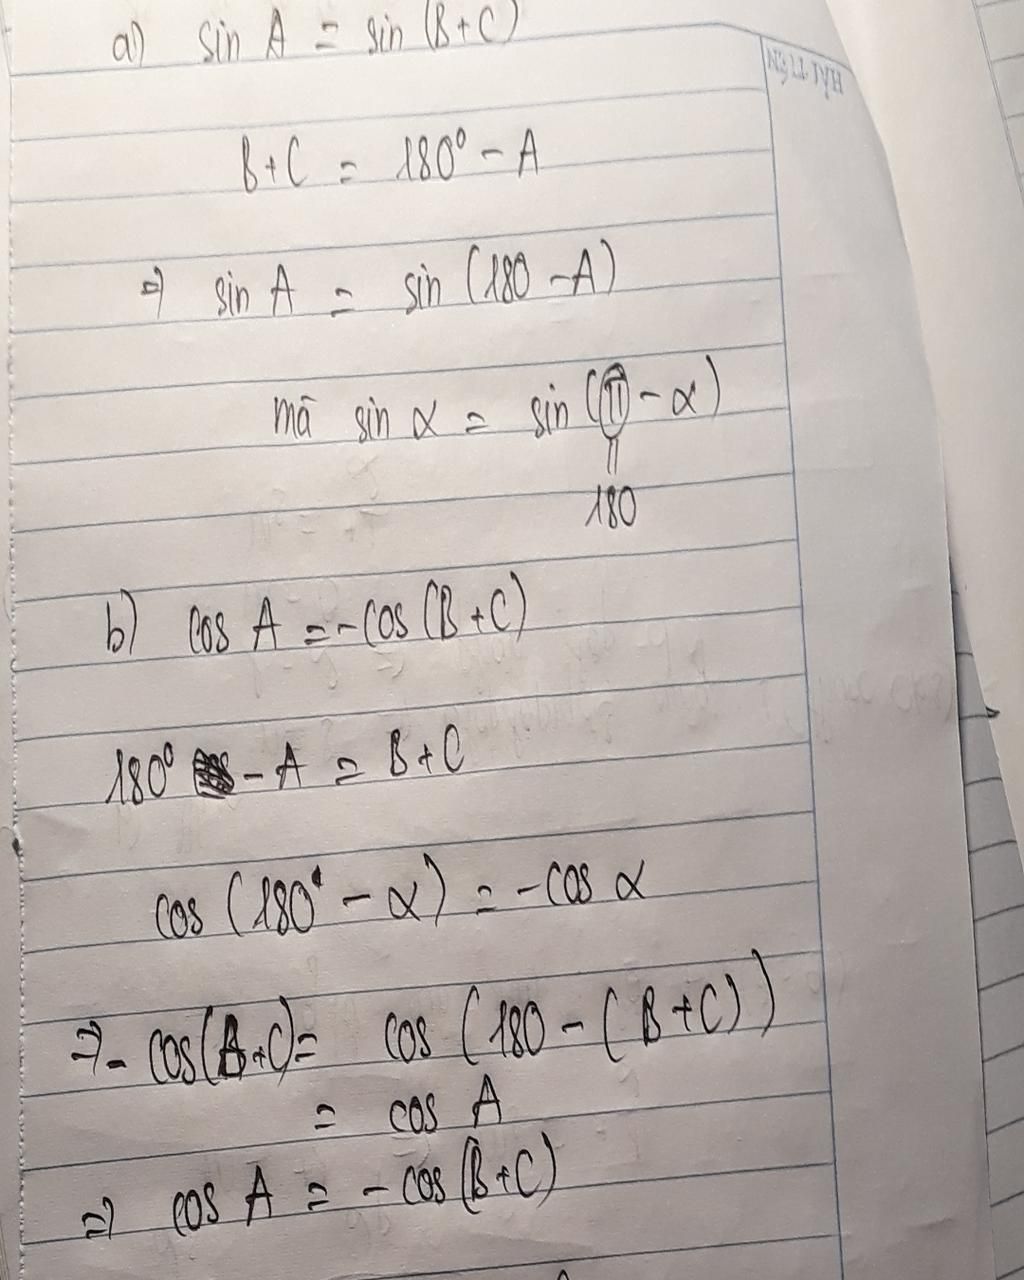 a) sin A = sin (B+C)
HẢI TIẾN
B+C = 180° - A
⇒ sin A = sin (180 - A)
mã sin α = sin (π - α)
180
b) cos A = - cos (B+C)
180° - A = B+C
cos (180° - α) = - cos α
⇒ - cos(B+C) = cos (180 - (B+C))
= cos A
⇒ cos A = - cos (B+C)